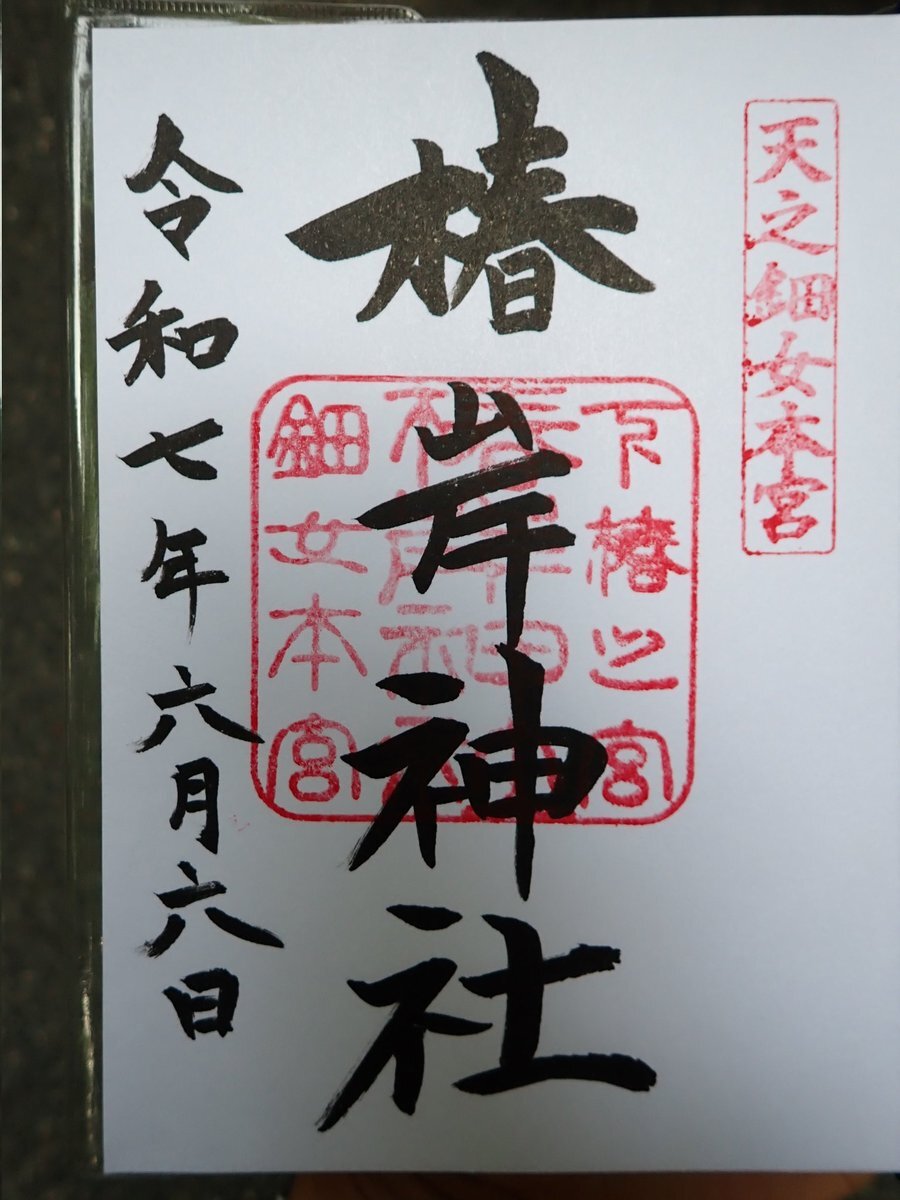 天之鈿女本宮
椿岸神社
下椿之宮
椿岸神社
鈿女本宮
令和七年六月六日